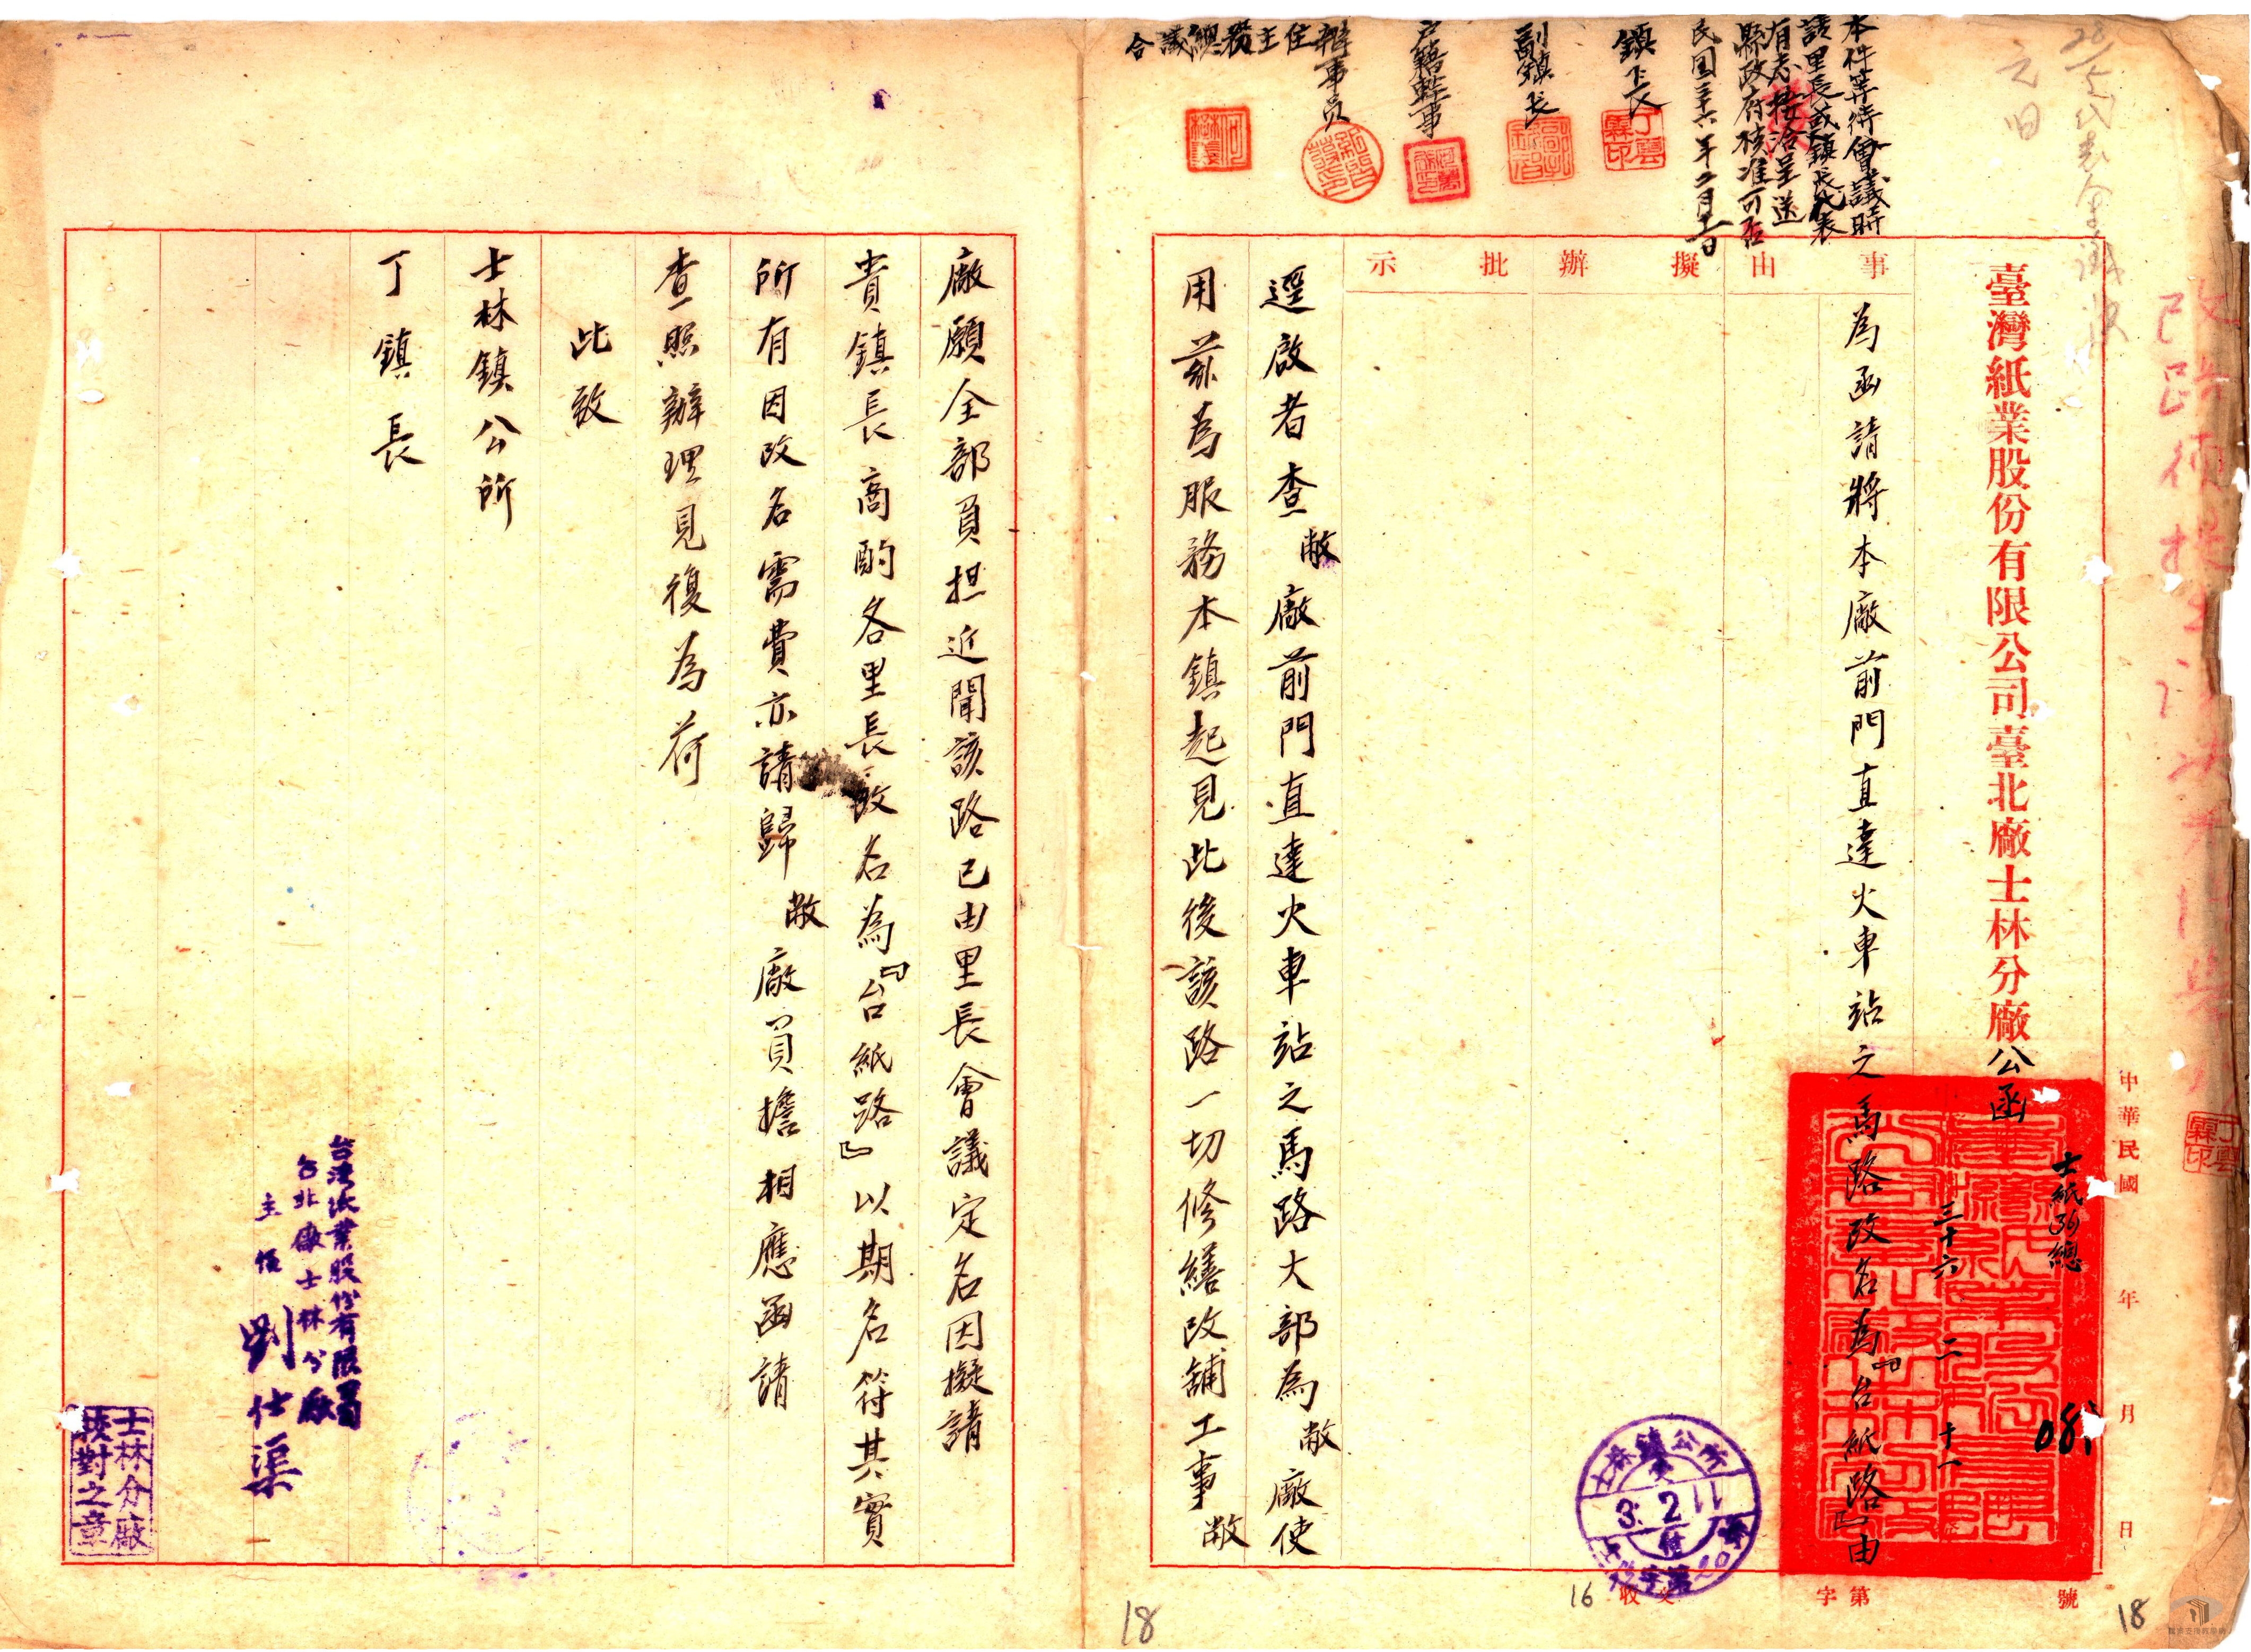 改路名
元田
本件等待會議時
該里長或鎮長代表
有志接洽呈送
縣政府核准可否
民國三十六年二月十一日
鎮長
副鎮長
戶籍幹事
辦事員
總務主任
合議
丁雲霖印
臺灣紙業股份有限公司臺北廠士林分廠公函
士紙(36)總
081
中華民國三十六年二月十一日
字第號
事由擬辦批示
為函請將本廠前門直達火車站之馬路改名為『台紙路』由
士林鎮公所
3.2.11
收文
16
逕啟者查敝廠前門直達火車站之馬路大部為敝廠使
用茲為服務本鎮起見此後該路一切修繕改舖工事敝
廠願全部負担近聞該路已由里長會議定名因擬請
貴鎮長商酌各里長改名為『台紙路』以期名符其實
所有因改名需費亦請歸敝廠負擔相應函請
查照辦理見復為荷
此致
士林鎮公所
丁鎮長
台灣紙業股份有限公司
台北廠士林分廠
主任劉仕渠
士林分廠
校對之章
18
18